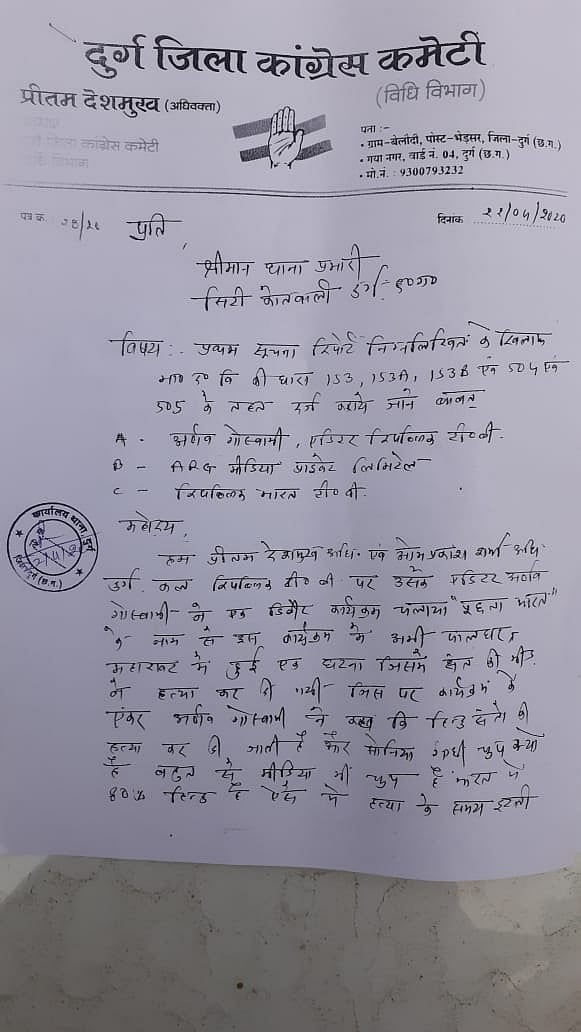 दुर्ग जिला कांग्रेस कमेटी
(विधि विभाग)
प्रीतम देशमुख (अधिवक्ता)
जिला कांग्रेस कमेटी
विभाग
पता :-
• ग्राम-बेलौदी, पोस्ट-भेड़सर, जिला-दुर्ग (छ.ग.)
• गया नगर, वार्ड नं. 04, दुर्ग (छ.ग.)
• मो.नं. : 9300793232
पत्र क्र.
दिनांक २२/०४/2020
प्रति,
श्रीमान थाना प्रभारी
सिटी कोतवाली दुर्ग छ०ग०
विषय :- प्रथम सूचना रिपोर्ट निम्नलिखित के खिलाफ
भा० द० वि की धारा 153, 153A, 153B एवं 504 एवं
505 के तहत दर्ज कराये जाने बाबत्
A - अर्णव गोस्वामी, एडिटर रिपब्लिक टी० वी.
B - ARG मीडिया प्राइवेट लिमिटेड
C - रिपब्लिक भारत टी० वी.
कार्यालय थाना दुर्ग
(छ.ग.)
महोदय,
हम प्रीतम देशमुख अधि. एवं ओम प्रकाश शर्मा अधि
दुर्ग. कल रिपब्लिक टी० वी पर उसके एडिटर अर्णव
गोस्वामी ने एक डिबेट कार्यक्रम चलाया "पूछता भारत"
के नाम से इस कार्यक्रम में अभी पालघर
महाराष्ट्र में हुई एक घटना जिसमें संत की भीड़
ने हत्या कर दी गयी जिस पर कार्यक्रम के
एंकर अर्णव गोस्वामी ने कहा कि हिन्दु संतो की
हत्या कर दी जाती है और सोनिया गांधी चुप क्यों
है बहुत से मीडिया भी चुप है भारत में
80% हिन्दु है ऐसे में हत्या के समय इटली